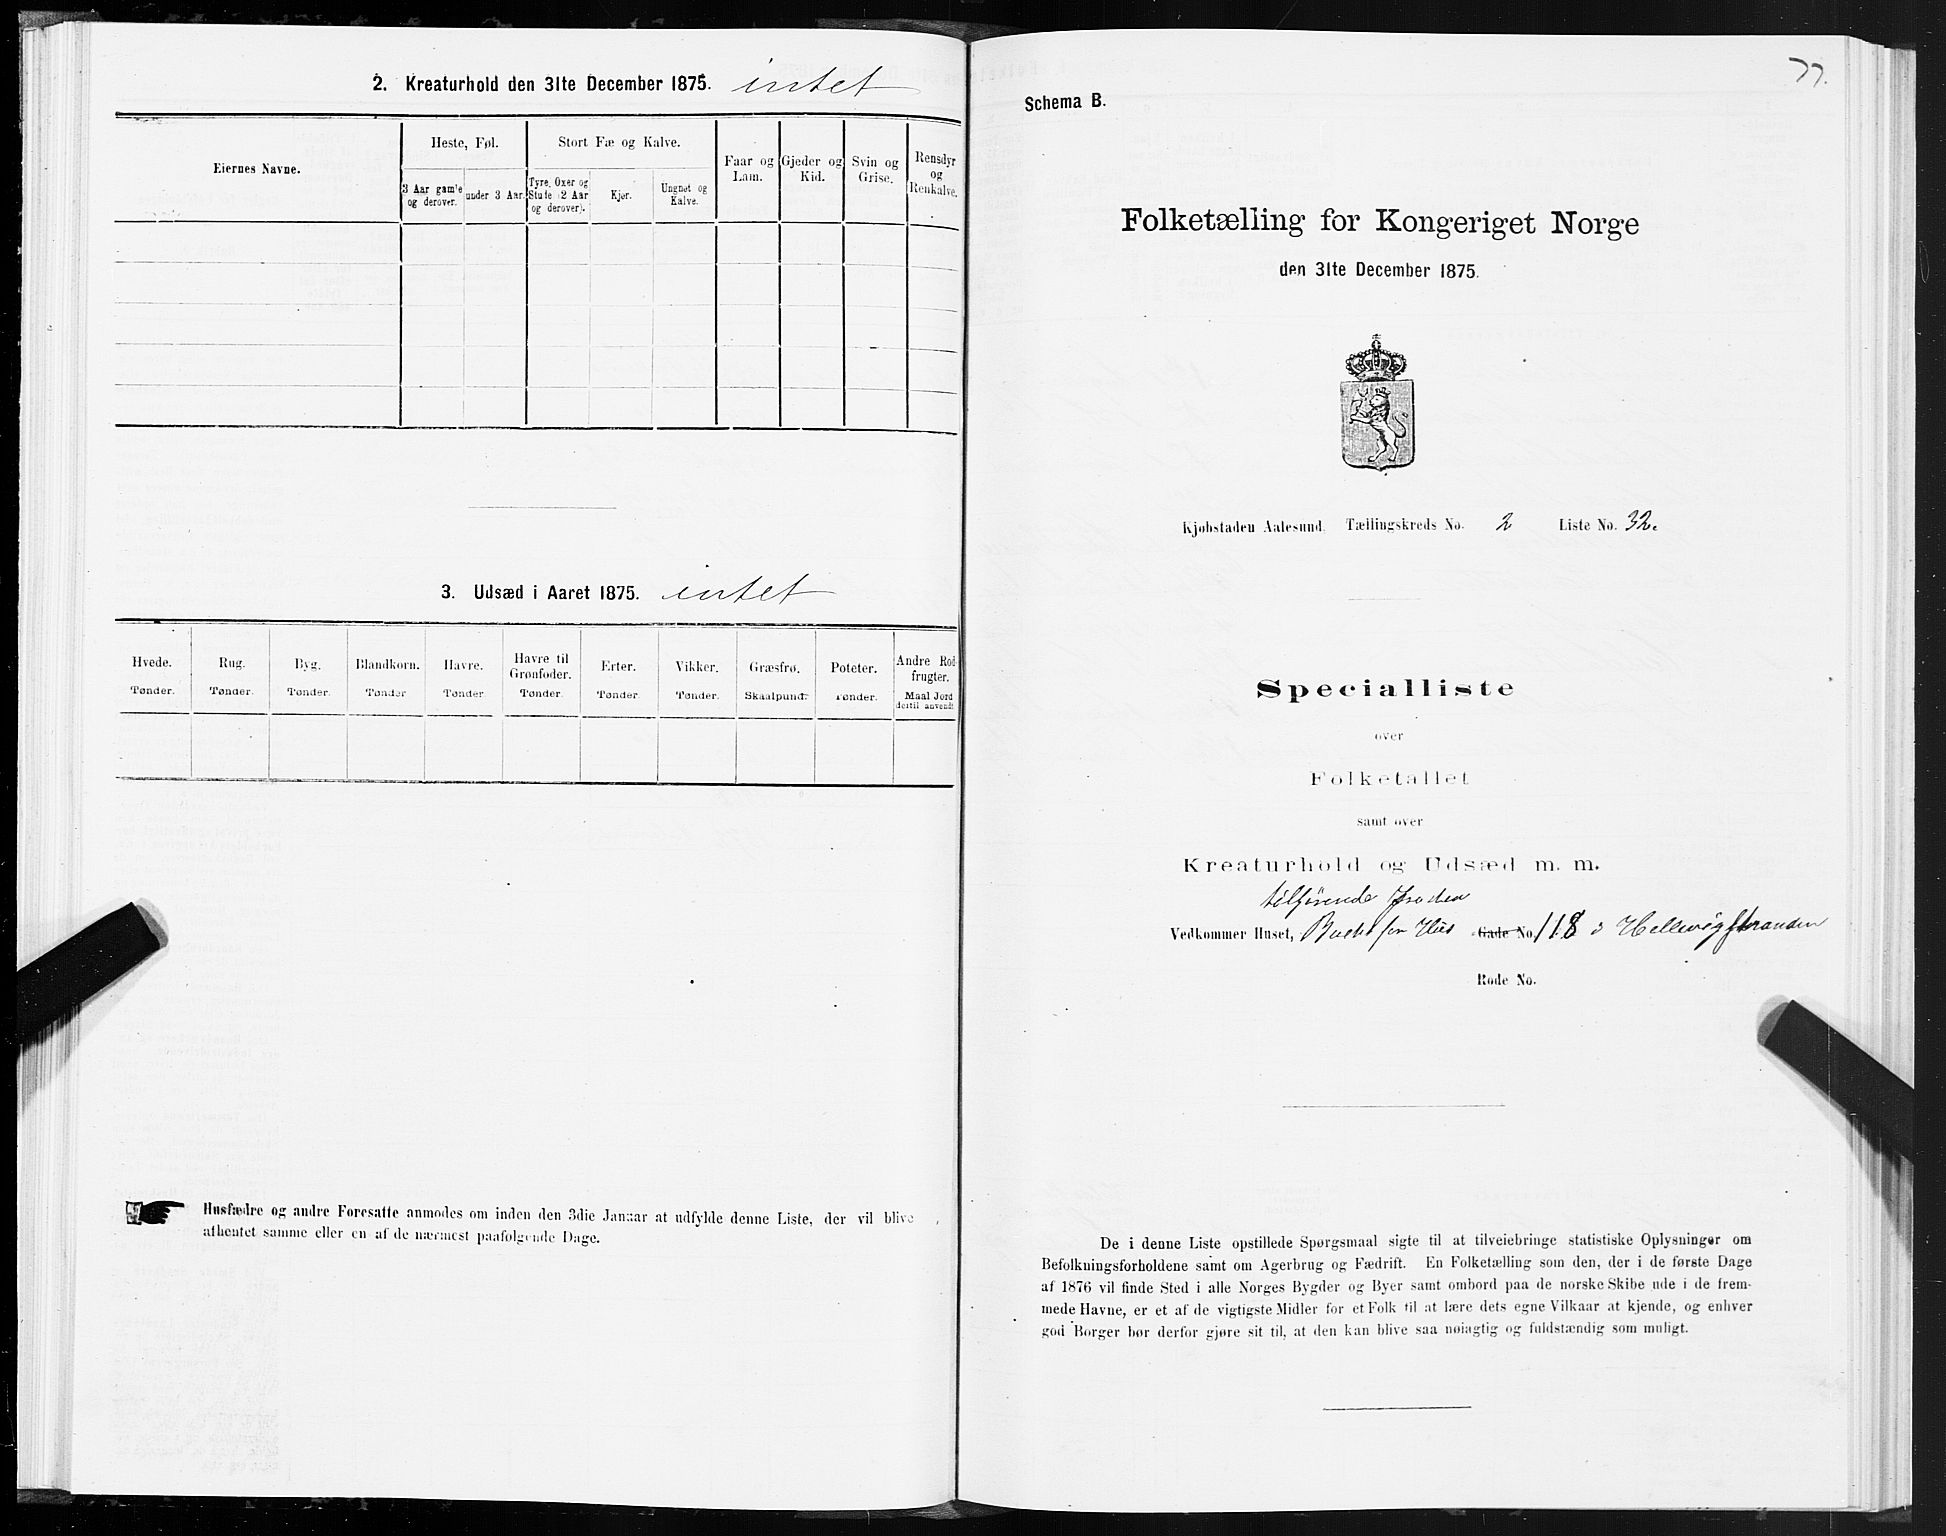 2. Kreaturhold den 31te December 1875. intet
Eiernes Navne.
Heste, Føl.
Stort Fæ og Kalve.
Faar og Lam.
Gjeder og Kid.
Svin og Grise.
Rensdyr og Renkalve.
3 Aar gam'e og derover.
under 3 Aar.
Tyre, Oxer og Stute (2 Aar og derover).
Kjør.
Ungnøt og Kalve.
3. Udsæd i Aaret 1875. intet
Hvede. Tønder.
Rug. Tønder.
Byg. Tønder.
Blandkorn. Tønder
Havre. Tønder.
Havre til Grønfoder. Tønder.
Erter. Tønder.
Vikker. Tønder.
Græsfrø. Skaalpund.
Poteter. Tønder.
Andre Rodfrugter. Maal Jord dertil anvendt
Husfædre og andre Foresatte anmodes om inden den 3die Januar at udfylde denne Liste, der vil blive
afhentet samme eller en af de nærmest paafølgende Dage.
77.
Schema B.
Folketælling for Kongeriget Norge
den 31te December 1875.
Kjøbstaden Aalesund. Tællingskreds No. 2 Liste No. 32.
Specialliste
over
Folketallet
samt over
Kreaturhold og Udsæd m. m.
Vedkommer Huset, Gade No. 118
Rode No.
De i denne Liste opstillede Spørgsmaal sigte til at tilveiebringe statistiske Oplysninger om
Befolkningsforholdene samt om Agerbrug og Fædrift. En Folketælling som den, der i de første Dage
af 1876 vil finde Sted i alle Norges Bygder og Byer samt ombord paa de norske Skibe ude i de frem-
mede Havne, er et af de vigtigste Midler for et Folk til at lære dets egne Vilkaar at kjende, og enhver
god Borger bør derfor gjøre sit til, at den kan blive saa nøiagtig og fuldstændig som muligt.